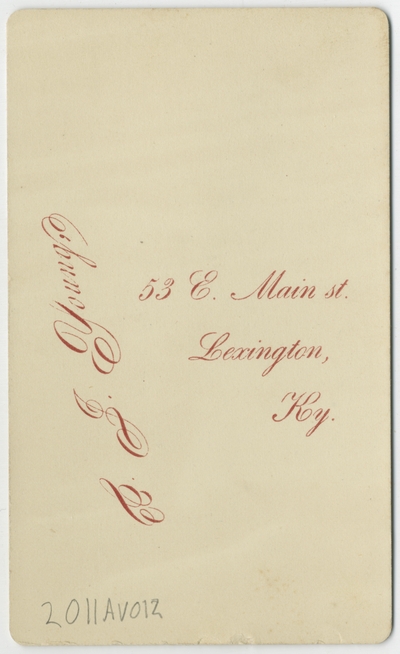 Young
53 E. Main st.
Lexington,
Ky.
2011AV012